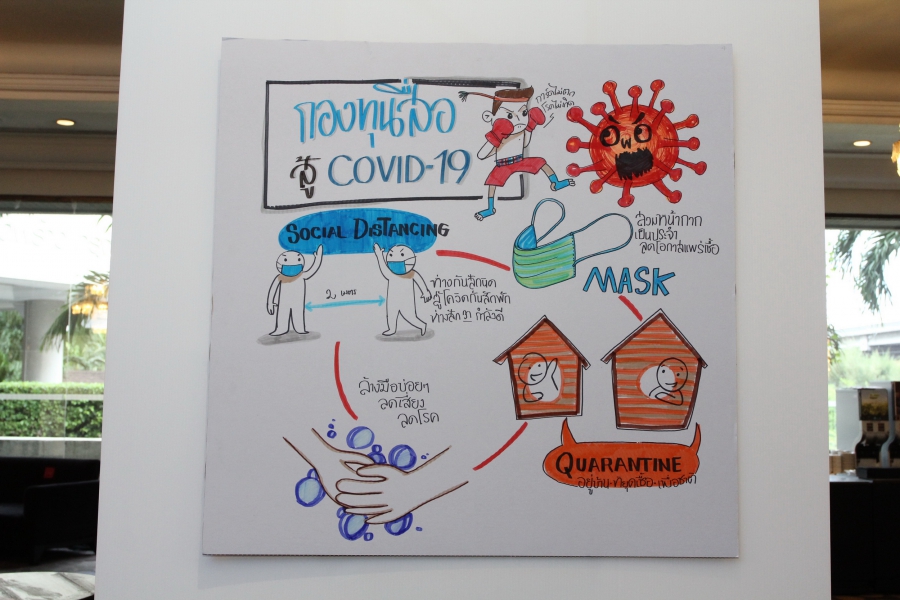 กองทุนสื่อ
สู้ COVID-19
การ์ดไม่ตก
โรคไม่เกิด
SOCIAL DISTANCING
2 เมตร
ห่างกันสักนิด
สู้โควิดกันสักพัก
ห่างสัก
กำลังดี
สวมหน้ากาก
เป็นประจำ
ลดโอกาสแพร่เชื้อ
MASK
ล้างมือบ่อยๆ
ลดเสี่ยง
ลดโรค
QUARANTINE
อยู่บ้าน หยุดเชื้อ เพื่อชาติ